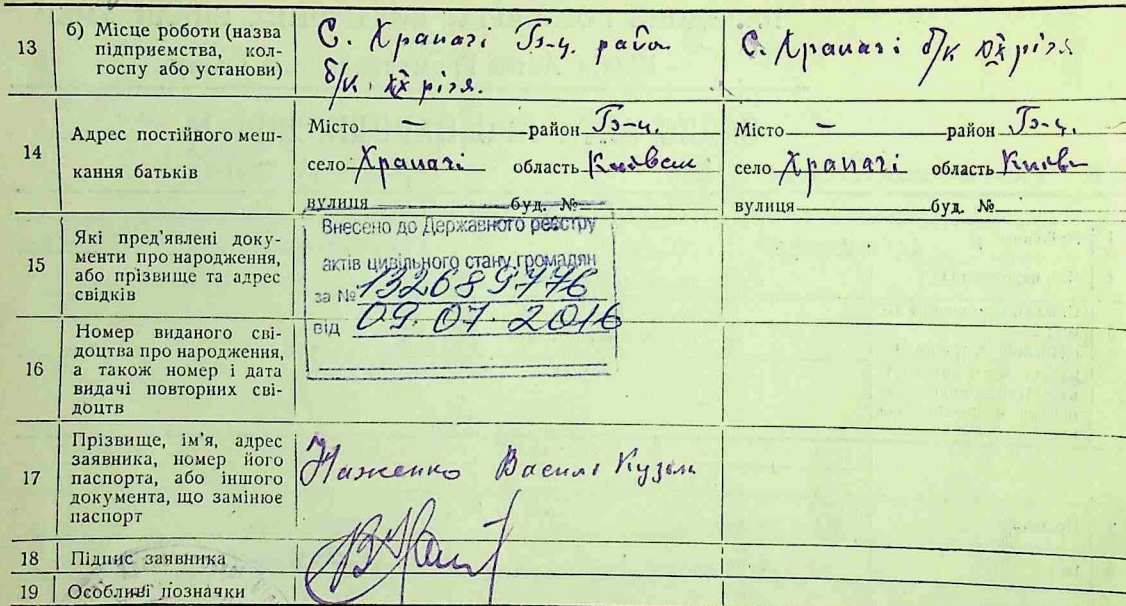 13
б) Місце роботи (назва
підприємства, кол-
госпу або установи)
С. Храпачі Б-ц. район
б/к
С. Храпачі б/к
14
Адрес постійного меш-
кання батьків
Місто — район Б-ц.
село Храпачі область Київськ
вулиця буд. №
Місто — район Б-ц.
село Храпачі область Київ
вулиця буд. №
15
Які пред'явлені доку-
менти про народження,
або прізвище та адрес
свідків
Внесено до Державного реєстру
актів цивільного стану громадян
за № 132689776
від 09.07 2016
16
Номер виданого сві-
доцтва про народження,
а також номер і дата
видачі повторних сві-
доцтв
17
Прізвище, ім'я, адрес
заявника, номер його
паспорта, або іншого
документа, що замінює
паспорт
Василь Кузьм
18
Підпис заявника
19
Особливі позначки